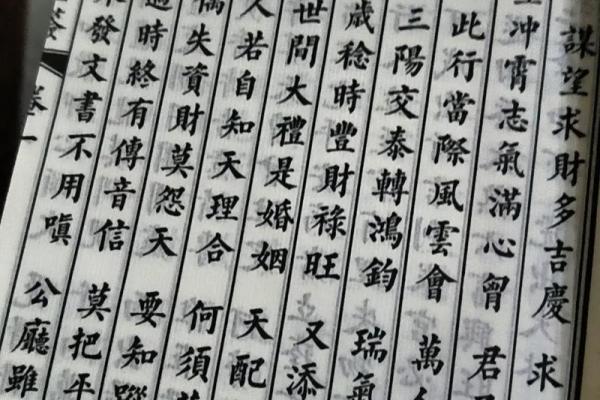 謀望求財多吉慶 求
冲霄志氣滿心胷 君
此行當際風雲會 萬
三陽交泰轉鴻鈞 瑞氣
歲稔時豐財祿旺 又添
世間大禮是婚姻 天配
人若自知天理合 何須
失資財莫怨天 要知
時終有傳音信 莫把平
發文書不用嗔 公廳雖
卷一